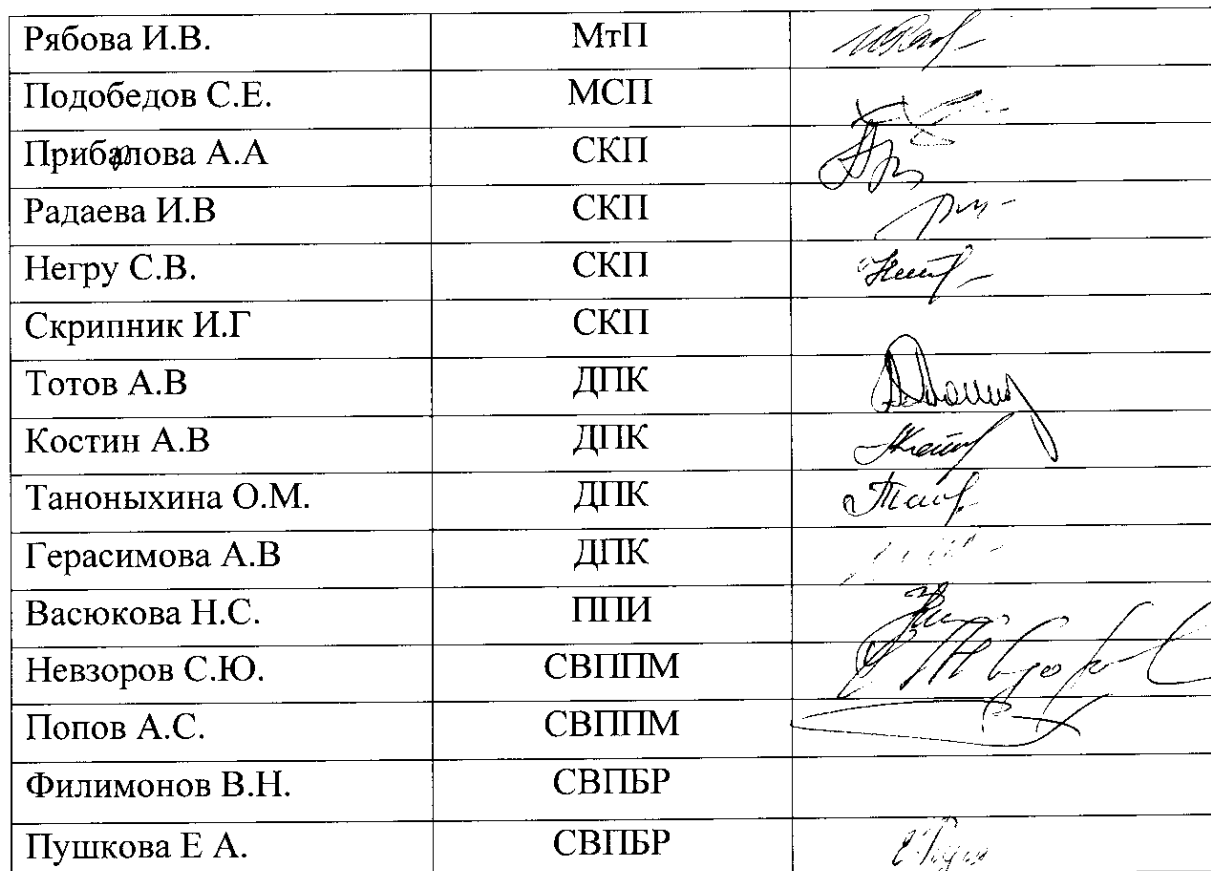 Рябова И.В. МтП
Подобедов С.Е. МСП
Прибалова А.А СКП
Радаева И.В СКП
Негру С.В. СКП
Скрипник И.Г СКП
Тотов А.В ДПК
Костин А.В ДПК
Таноныхина О.М. ДПК
Герасимова А.В ДПК
Васюкова Н.С. ППИ
Невзоров С.Ю. СВППМ
Попов А.С. СВППМ
Филимонов В.Н. СВПБР
Пушкова Е А. СВПБР